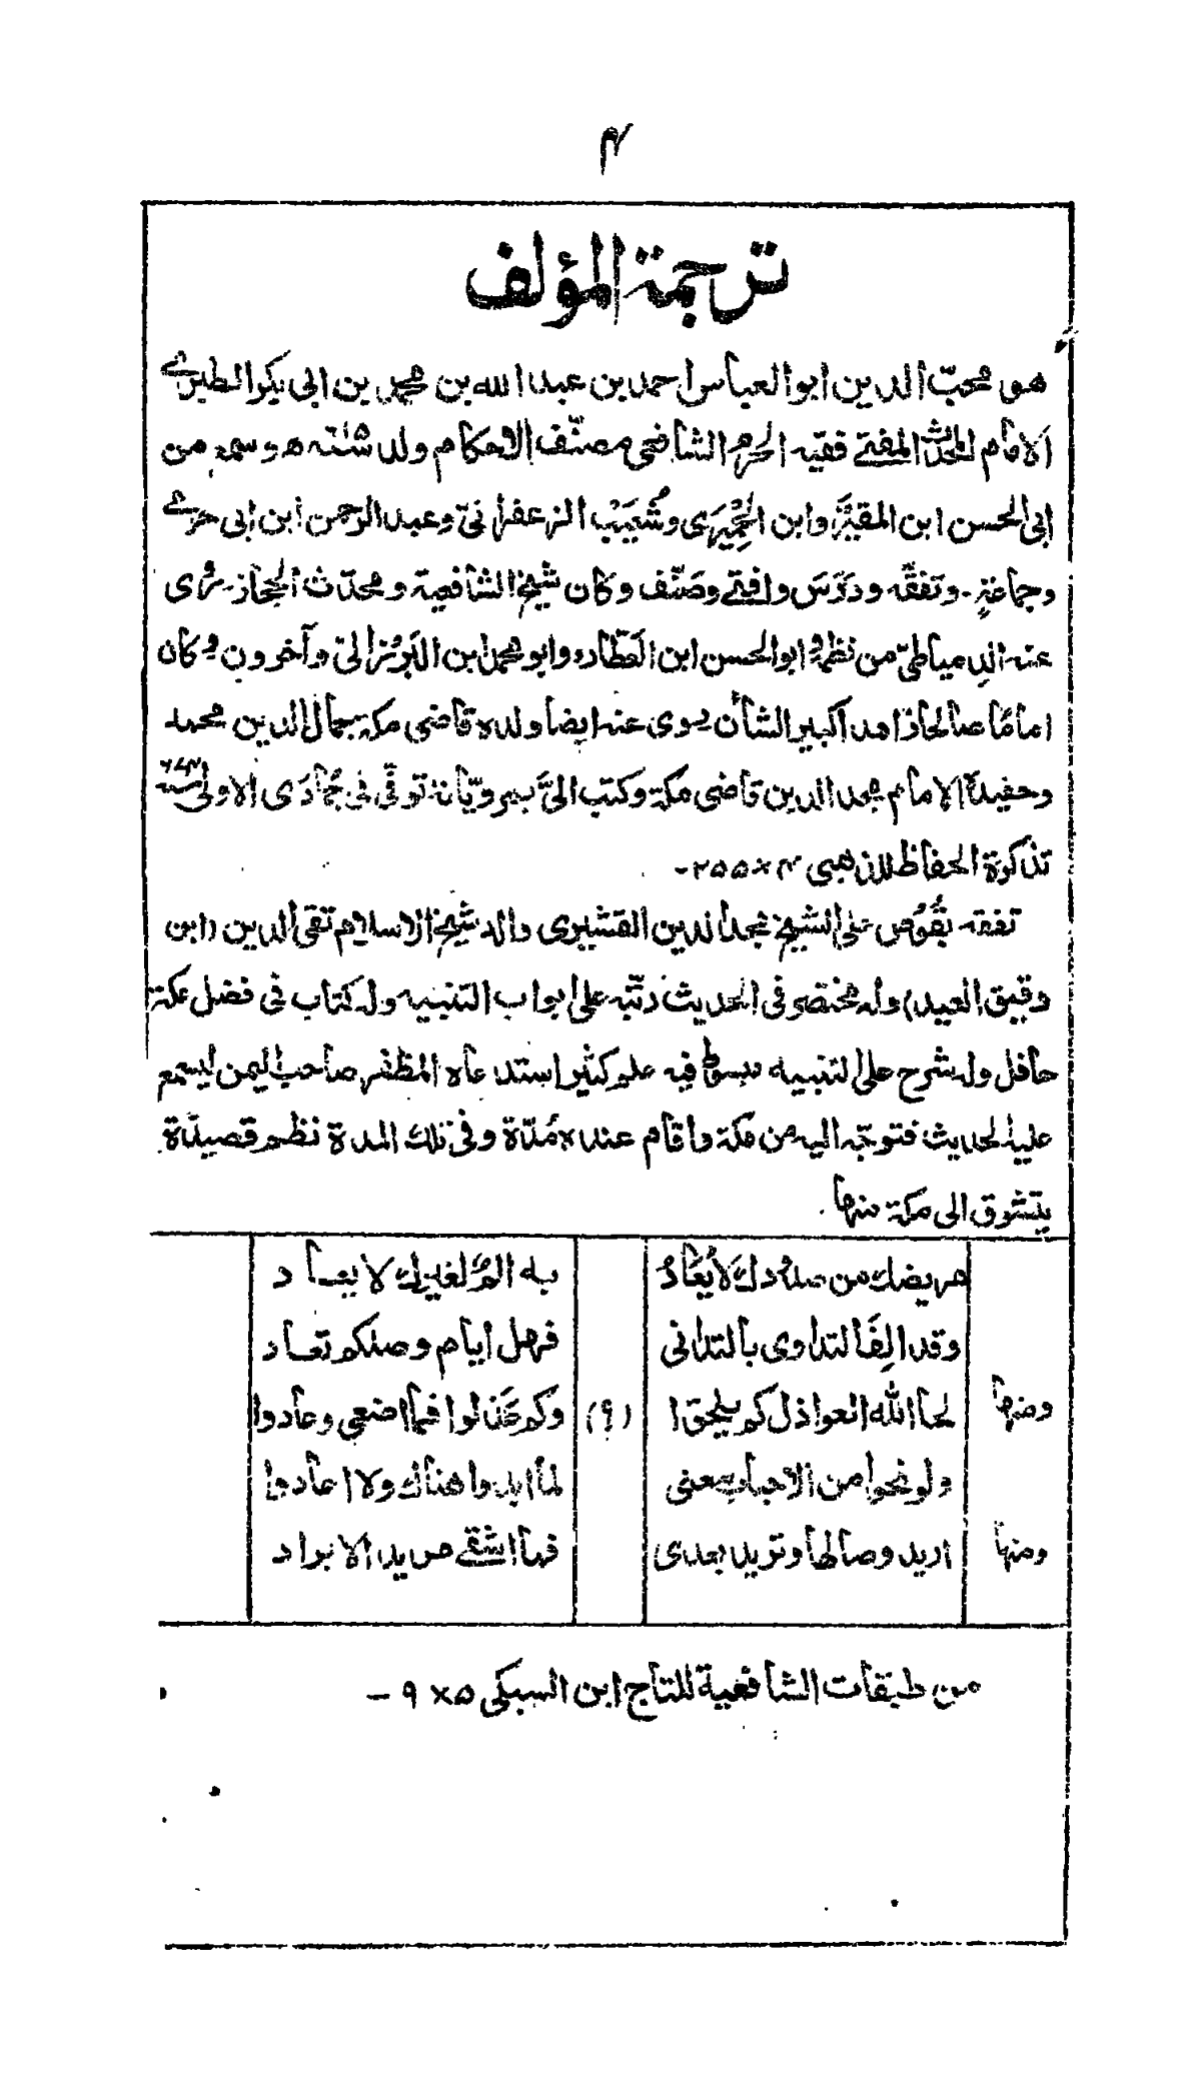 ۴
ترجمة المؤلف
هو محبّ الدين ابو العباس احمد بن عبد الله بن محمد بن ابى بكر الطبرے
الامام المحدّث المفتے فقيه الحرم الشافعى مصنّف الاحكام ولد سنه ھ وسمع من
ابى الحسن ابن المقيَّر وابن الجُمِّيزى وشُعَيب الزعفرانىّ وعبد الرحمن ابن ابى حرمے
وجماعةٍ ـ وتفقّه ودرّس وافتے وصنّف وكان شيخ الشافعية ومحدّث الحجاز ـ روى
عنه الدمياطىّ من نظمه وابو الحسن ابن العطّار وابو محمد ابن البَرزالىّ وآخرون وكان
امامًا صالحًا زاهدا كبير الشأن يروى عنه ايضا ولده قاضى مكة جمال الدين محمد
وحفيده الامام نجم الدين قاضى مكة وكتب الىَّ بمروياته توفّى فى جُمادَى الاولى سنة
تذكرة الحفاظ للذهبى ۴ × ۲۵۵ ـ
تفقه بقُوص على الشيخ مجد الدين القشيرى والد شيخ الاسلام تقى الدين (ابن
دقيق العيد) وله مختصر فى الحديث رتّبه على ابواب التنبيه وله كتاب فى فضل مكة
حافل وله شرح على التنبيه مبسوط فيه علم كثير استدعاه المظفر صاحب اليمن ليسمع
عليه الحديث فتوجّه اليه من مكة واقام عنده مُدّة وفى تلك المدة نظم قصيدة
يتشوق الى مكة منها ـ
مريضك من صدُودك لا يُعَادُ به المٌ لغيرك لا يعاد
وقد الِفَ التداوى بالتدانى فهل ايام وصلكم تعاد
ومنها لحا الله العواذل كم يلحق ا (؟) وكم عَذلوا فما اصغى وعادوا
ولو لمحوا من الاحباب معنى لما ابدوا هناك ولا اعادوا
ومنها اريد وصالها وتريد بعدى فما اشقے مريد الا يراد
من طبقات الشافعية للتاج ابن السبكى ۵ × ۹ ـ